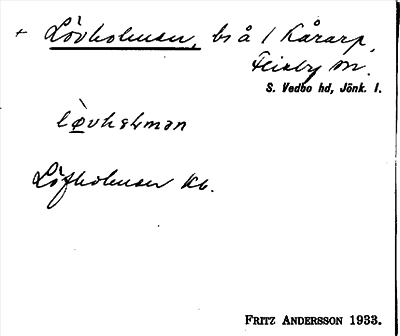 + Lövholmen, bs å / Kårarp,
Flisby sn.
S. Vedbo hd, Jönk. l.
løvhəlmən
Löfholmen Kb.
FRITZ ANDERSSON 1933.